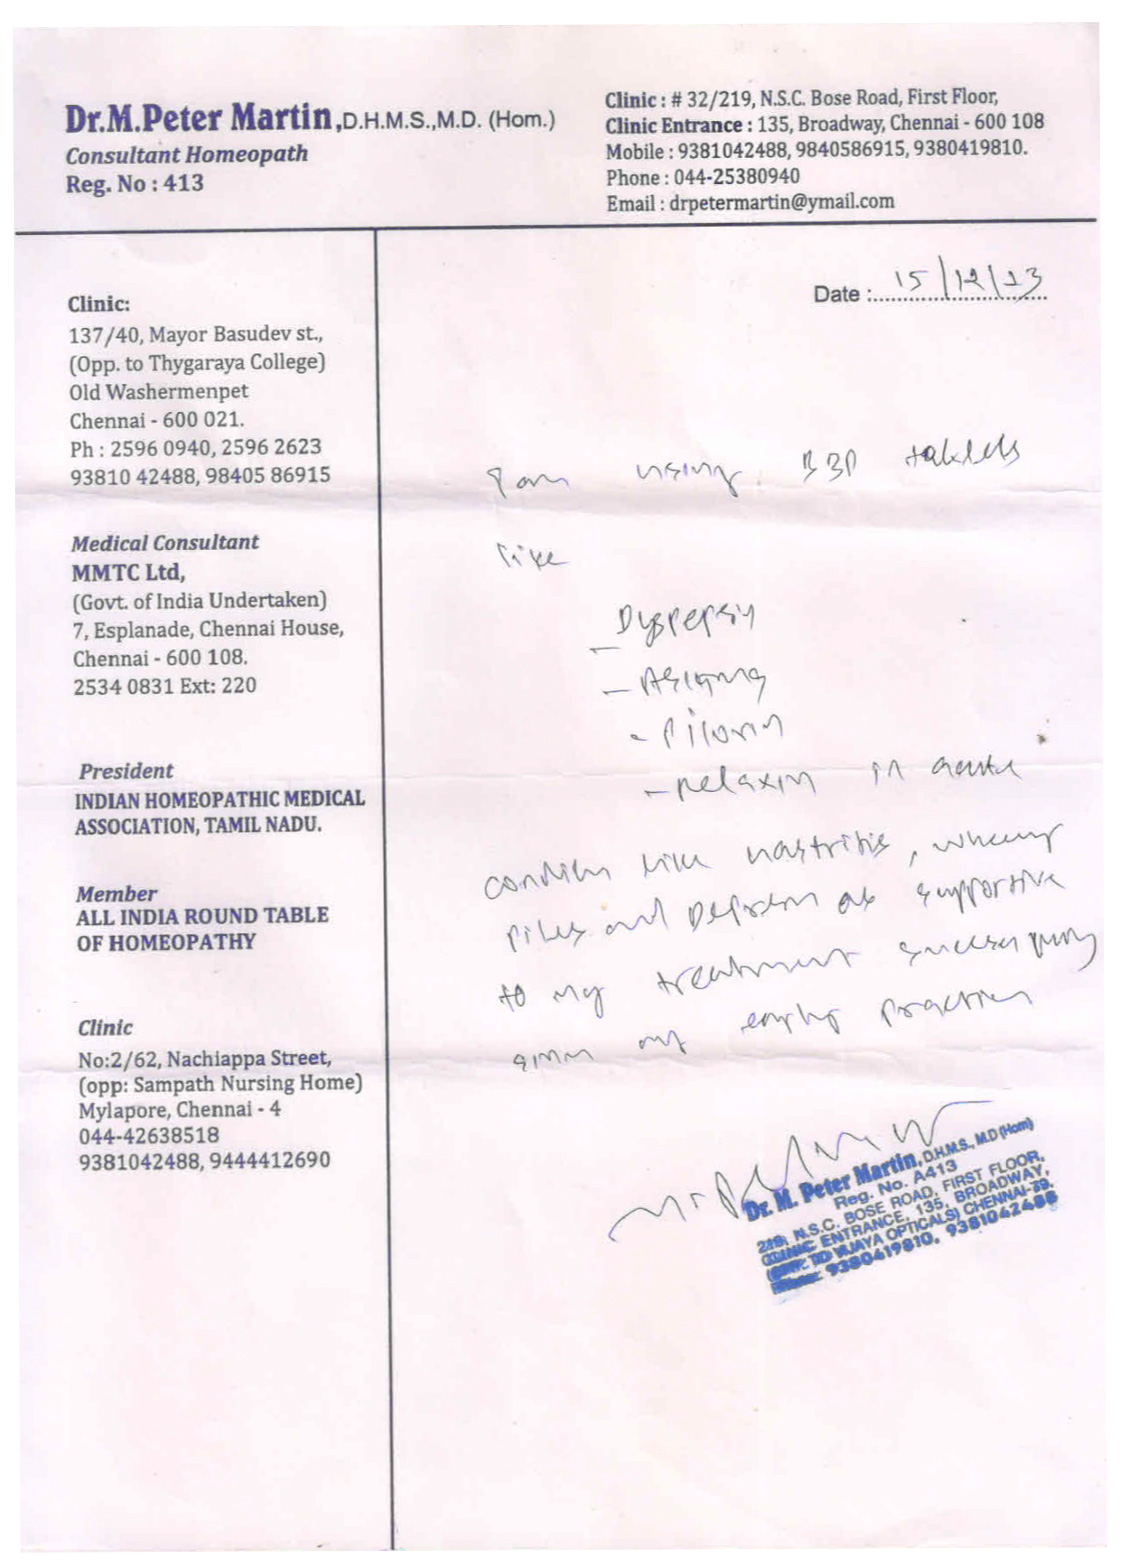 Dr.M.Peter Martin,D.H.M.S.,M.D. (Hom.)
Consultant Homeopath
Reg. No : 413
Clinic : # 32/219, N.S.C. Bose Road, First Floor,
Clinic Entrance : 135, Broadway, Chennai - 600 108
Mobile : 9381042488, 9840586915, 9380419810.
Phone : 044-25380940
Email : drpetermartin@ymail.com
Clinic:
137/40, Mayor Basudev st.,
(Opp. to Thygaraya College)
Old Washermenpet
Chennai - 600 021.
Ph : 2596 0940, 2596 2623
93810 42488, 98405 86915
Medical Consultant
MMTC Ltd,
(Govt. of India Undertaken)
7, Esplanade, Chennai House,
Chennai - 600 108.
2534 0831 Ext: 220
President
INDIAN HOMEOPATHIC MEDICAL
ASSOCIATION, TAMIL NADU.
Member
ALL INDIA ROUND TABLE
OF HOMEOPATHY
Clinic
No:2/62, Nachiappa Street,
(opp: Sampath Nursing Home)
Mylapore, Chennai - 4
044-42638518
9381042488, 9444412690
Date : 15/12/23
I am using BBP tablets
like
- Dyspepsin
- Pilorin
- Relaxin in acute
like
piles and as supportive
to my treatment
my
Dr. M. Peter Martin, D.H.M.S., M.D (Hom)
Reg. No. A413
219, N.S.C. BOSE ROAD, FIRST FLOOR,
CLINIC ENTRANCE, 135, BROADWAY,
VIJAYA OPTICALS) CHENNAI-79.
9380419810, 9381042488